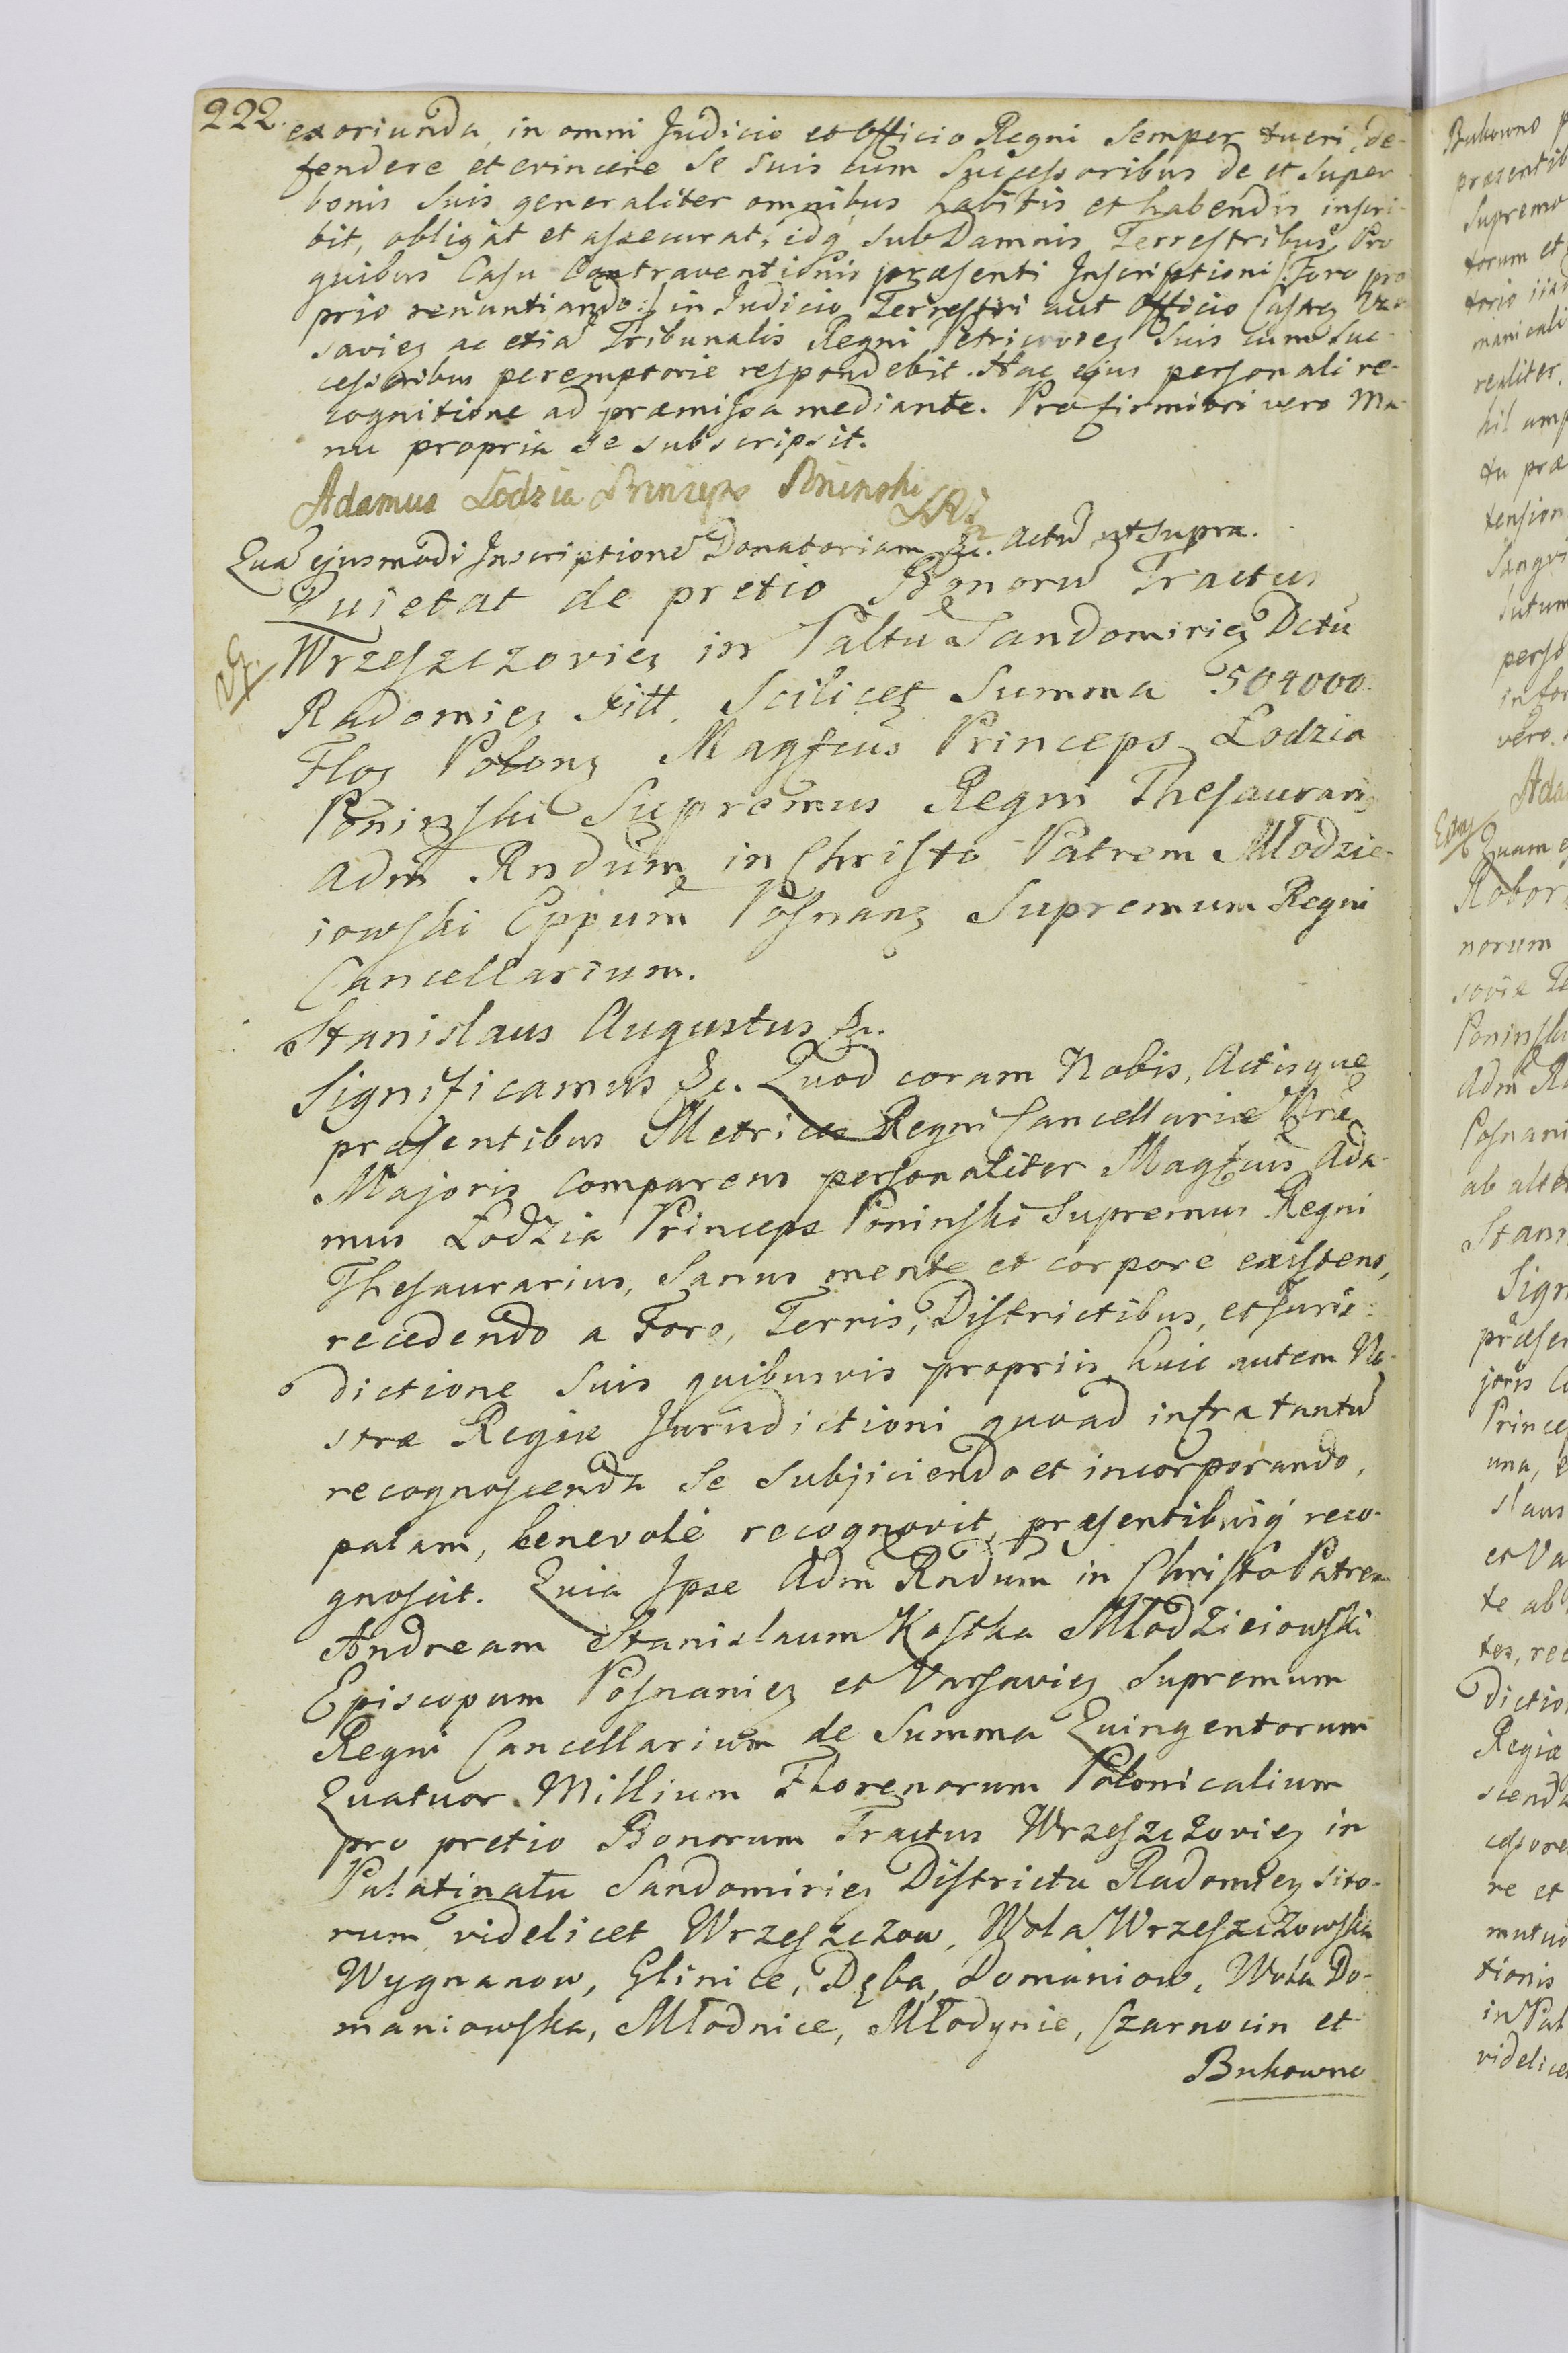 222.
exoriunda, in omni Judicio et Officio Regni Semper tueri, de-
fendere et evincere se suis cum Successoribus de et super
bonis suis generaliter omnibus habitis et habendis inscri-
bit, obligat et assecurat, idq sub Damnis Terrestribus, Pro
quibus Casu Contraventionis præsenti Inscriptioni /:Foro pro
prio renuntiando:/ in Judicio Terrestri aut Officio Castrz Var
saviez ac etiã Tribunalis Regni Petricoviez suis cum Suc-
cessoribus peremptorie respondebit. Hac ejus personali re-
cognitione ad præmissa mediante. Pro firmiori vero Ma-
nu propria se subscripsit.
Adamus Lodzia Princeps Poninski
Quã ejusmodi Inscriptionẽ Donatoriam &c. Actũ ut supra.
Quietat de pretio Bonorũ Tractus
Wrzeszczoviez in Paltu Sandomiriez Dctu
Radomiez sitt. Scilicet Summa 504000.
Floz Polonz Magfcus Princeps Łodzia
Poninski Supremus Regni Thesaurari9
Adm Rndum in Christo Patrem Młodzie-
iowski Eppum Posnanz Supremum Regni
Cancellarium.
Stanislaus Augustus &c.
Significamus &c. Quod coram Nobis, Actisque
præsentibus Metrices Regni Cancellariæ Nræ
Majoris Comparens personaliter Magfcus Ada-
mus Łodzia Princeps Poninski Supremus Regni
Thesaurarius, Sanus mente et corpore existens,
recedendo a Foro, Terris, Districtibus, et Juris-
dictione suis quibusvis propriis, huic autem No-
stræ Regiæ Jurisdictioni quoad infra tantũ
recognoscenda se subjiciendo et incorporando,
palam, benevolè recognovit, præsentibusq reco-
gnoscit. Quia Ipse Adm Rndum in Christo Patrem
Andream Stanislaum Kostka Młodzieiowski
Episcopum Posnaniez et Varsaviez Supremum
Regni Cancellarium de Summa Quingentorum
Quatuor Millium Florenorum Polonicalium
pro pretio Bonorum Tractus Wrzeszczoviez in
Palatinatu Sandomiriez Districtu Radomiez sito-
rum videlicet Wrzeszczow, Wola Wrzeszczowska
Wygnanow, Glinice, Dęba, Domaniow, Wola Do-
maniowska, Młodnice, Młodynie, Czarnocin et
Bukowno
Bukowno
præsentib
Supremo
torum et
torio
manicali
realiter,
hil amp
tu præ
tension
Sangvi
perso
vero
Ada
Quam e
Robor
norum
soviæ Te
Poninski
Adm Rn
Posnani
ab alte
Stani
Sign
præsen
joris Co
Princep
una, e
slaus
et Va
te ab
tes, rec
dictio
Regiæ
scenda
cessore
re et
mutuo
tionis
in Pal
videlice